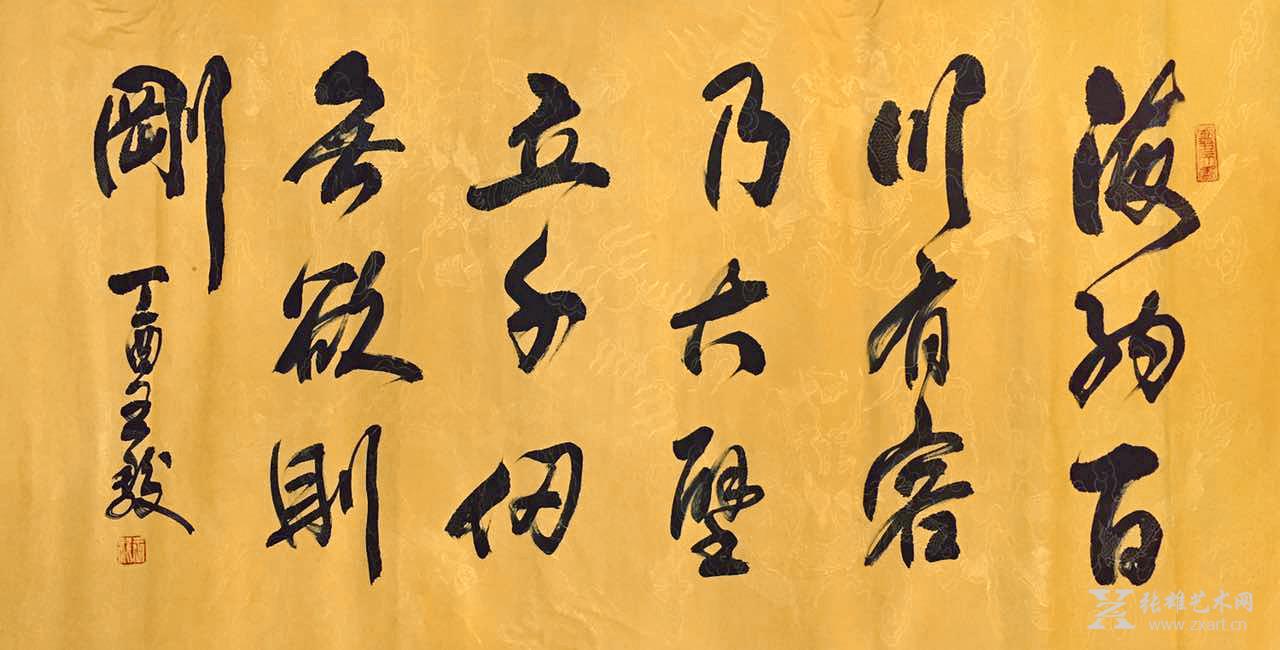 海納百
川有容
乃大壁
立千仞
無欲則
剛
丁酉
张雄艺术网
www.zxart.cn